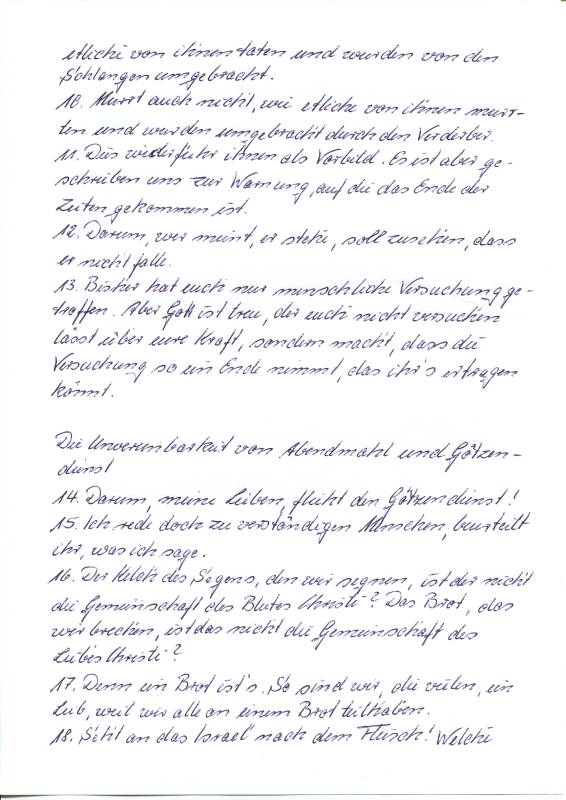 etliche von ihnen taten und wurden von den
Schlangen umgebracht.
10. Murrt auch nicht, wie etliche von ihnen murr-
ten und wurden umgebracht durch den Verderber.
11. Dies widerfuhr ihnen als Vorbild. Es ist aber ge-
schrieben uns zur Warnung, auf die das Ende der
Zeiten gekommen ist.
12. Darum, wer meint, er stehe, soll zusehen, dass
er nicht falle.
13. Bisher hat euch nur menschliche Versuchung ge-
troffen. Aber Gott ist treu, der euch nicht versuchen
lässt über eure Kraft, sondern macht, dass die
Versuchung so ein Ende nimmt, das ihr's ertragen
könnt.
Die Unvereinbarkeit von Abendmahl und Götzen-
dienst
14. Darum, meine Lieben, flieht den Götzendienst!
15. Ich rede doch zu verständigen Menschen, beurteilt
ihr, was ich sage.
16. Der Kelch des Segens, den wir segnen, ist der nicht
die Gemeinschaft des Blutes Christi? Das Brot, das
wir brechen, ist das nicht die Gemeinschaft des
Leibes Christi?
17. Denn ein Brot ist's. So sind wir, die vielen, ein
Leib, weil wir alle an einem Brot teilhaben.
18. Seht an das Israel nach dem Fleisch! Welche